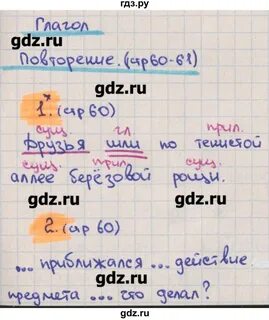 gdz.ru
Глагол
gdz.ru gdz.ru
Повторение. (стр 60-61)
gdz.ru
1.* (стр 60)
сущ. гл. прил.
Друзья шли по тенистой
сущ. прил. сущ.
аллее берёзовой рощи.
gdz.ru gdz.ru
2. (стр 60)
... приближался ... действие
предмета ... что делал?
gdz.ru gdz.ru